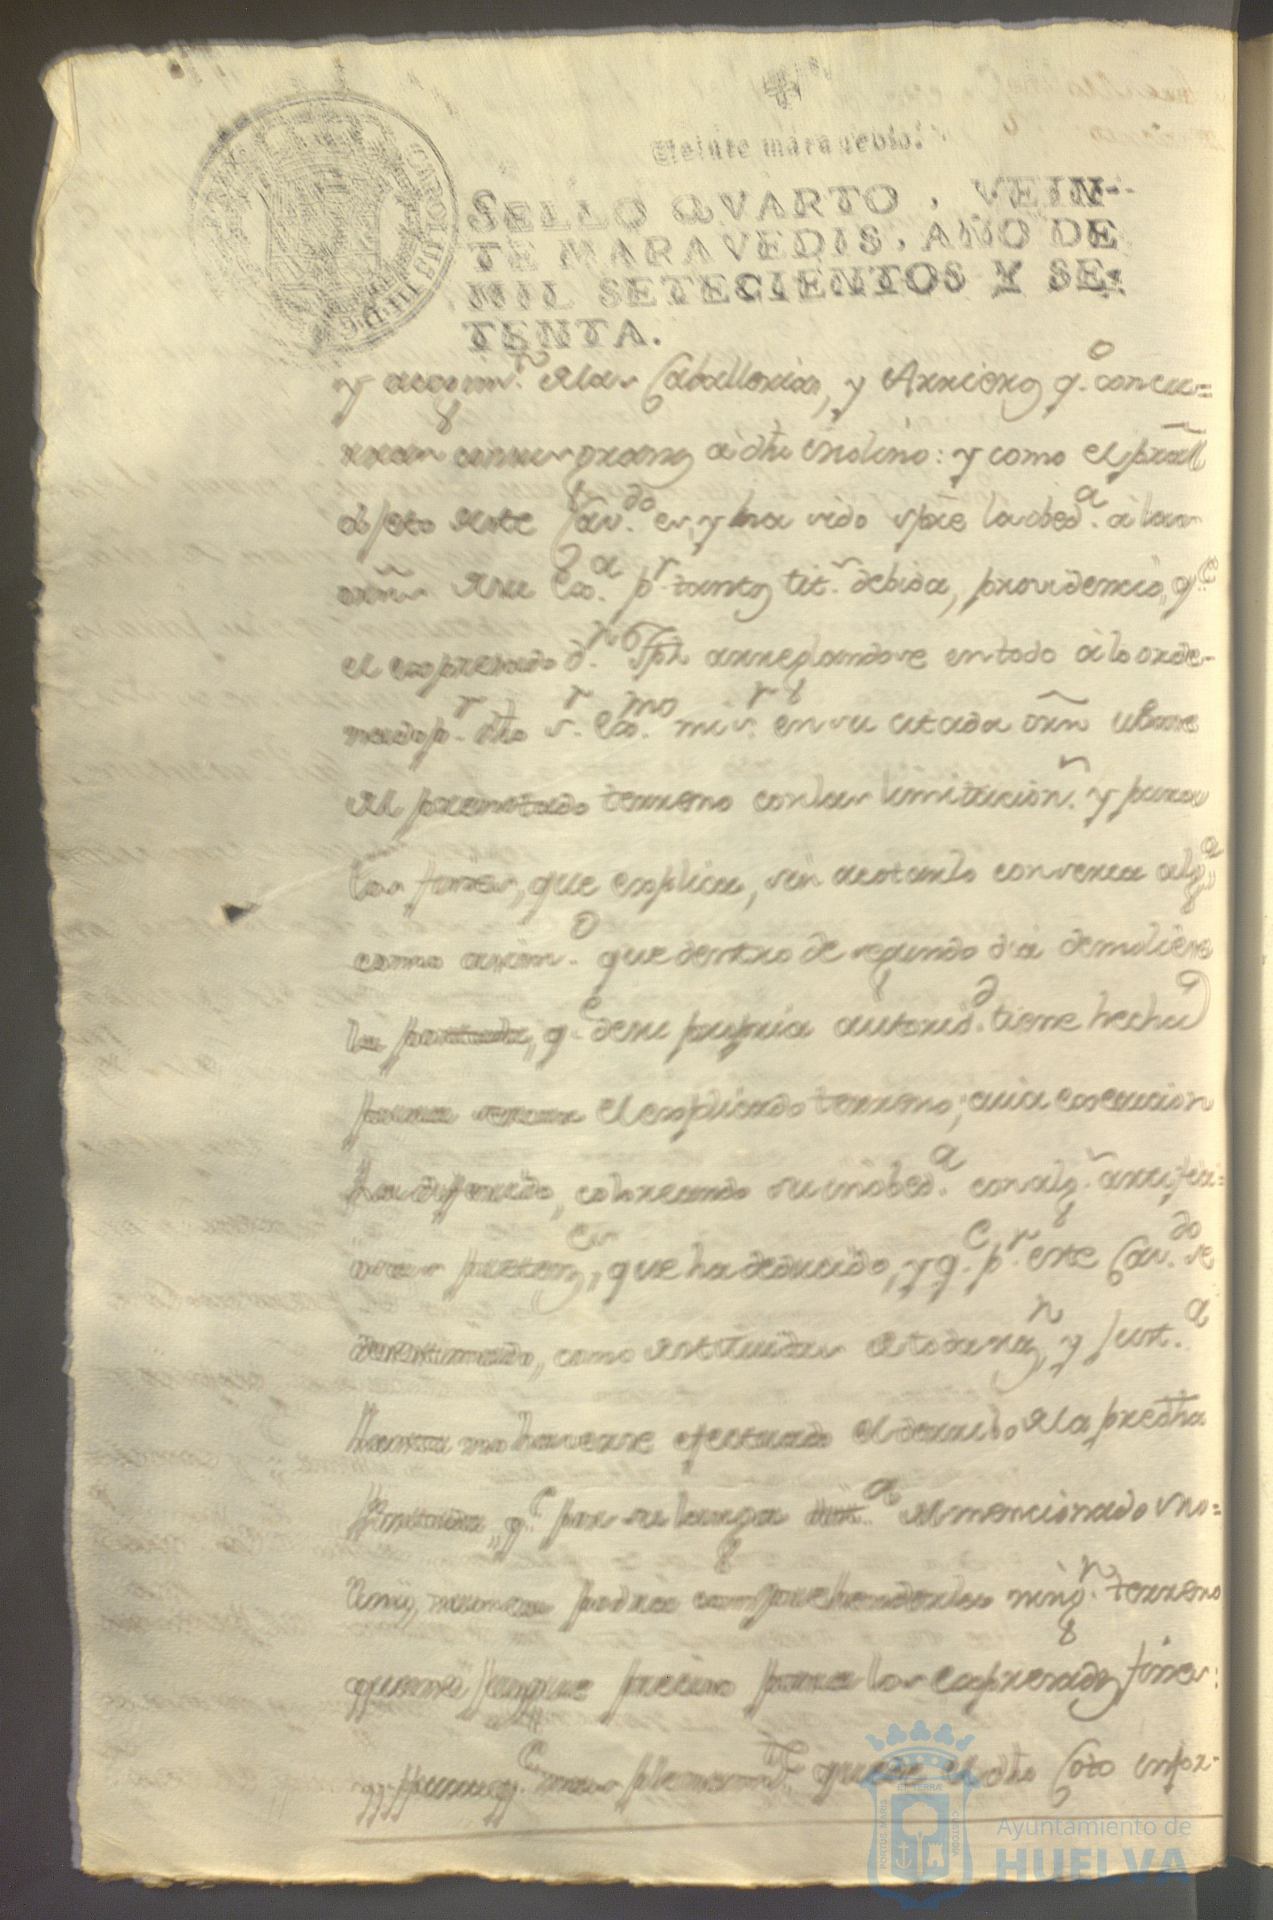 Veinte maravedis.
SELLO QVARTO, VEIN-
TE MARAVEDIS, AÑO DE
MIL SETECIENTOS Y SE-
TENTA.
CAROLUS III D G
y acogim.to de las Caballerias, y Arrieros q.e concu=
rran con sus granos a dho Molino: y como el pral
objeto de este Cav.do es, y ha sido spre la obed.a a las
orns de su Exa. p.r tantos tit.s debida, providenció, q.e
el expresado d.n Jph arreglandose en todo a lo orde-
nado p.r dho s.r Exmo mi s.r en su citada orn use
del prenotado terreno con las limitacion.s y para
los fines, que explica, sin acotarlo con cerca alg.a
como assim.o que dentro de segundo dia demoliese
la portada, q.e de su propria autorid.d tiene hecha
para cercar el explicado terreno, cuia execucion
ha diferido, coloreando su inobed.a con alg.s artificio=
sos pretextos, que ha deducido, y q.e p.r este Cav.do se
desestimado, como destituidas de toda raz.n y just.a
Hasta no haverse efectuado el derribo de la predha
Portada, q.e por su larga dist.a del mencionado Mo=
lino, nunca podra comprehenderla ning.n terreno
que preciso para los expresados fines:
y q.e mas plenam.te quede el dho Coto
PORTUS MARIS ET TERRÆ CUSTODIA
Ayuntamiento de
HUELVA